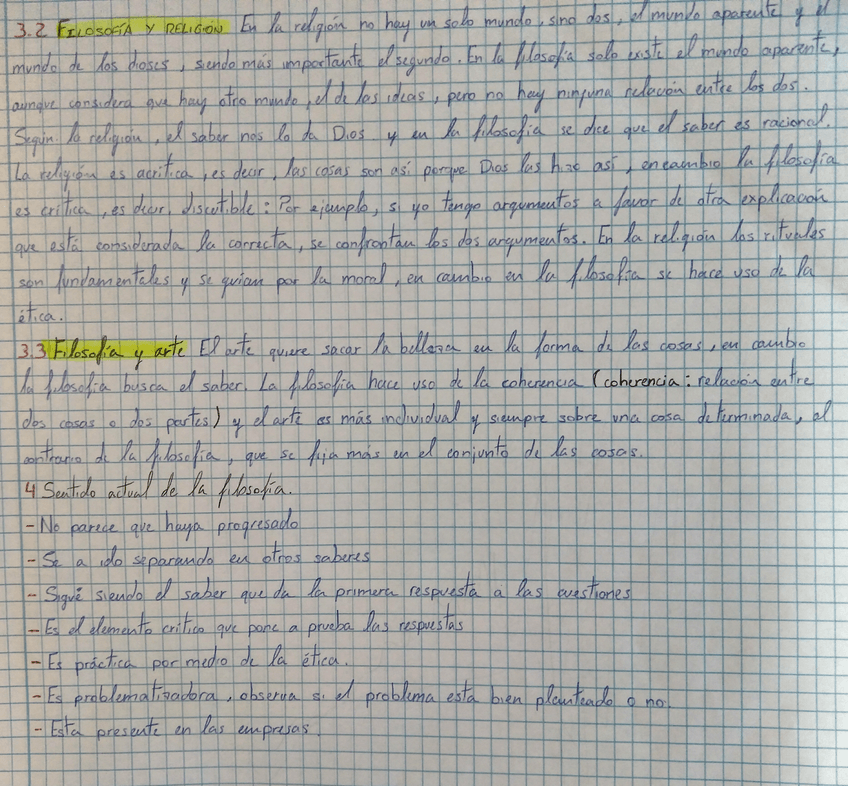 3.2 FILOSOFÍA Y RELIGIÓN En la religión no hay un solo mundo, sino dos, el mundo aparente y el
mundo de los dioses, siendo más importante el segundo. En la filosofía solo existe el mundo aparente,
aunque considera que hay otro mundo, el de las ideas, pero no hay ninguna relación entre los dos.
Según la religión, el saber nos lo da Dios y en la filosofía se dice que el saber es racional.
La religión es acrítica, es decir, las cosas son así porque Dios las hizo así, en cambio la filosofía
es crítica, es decir, discutible: Por ejemplo, si yo tengo argumentos a favor de otra explicación
que está considerada la correcta, se confrontan los dos argumentos. En la religión los rituales
son fundamentales y se guian por la moral, en cambio en la filosofía se hace uso de la
ética.
3.3 Filosofía y arte El arte quiere sacar la belleza en la forma de las cosas, en cambio
la filosofía busca el saber. La filosofía hace uso de la coherencia (coherencia: relación entre
dos cosas o dos partes) y el arte es más individual y siempre sobre una cosa determinada, al
contrario de la filosofía, que se fija más en el conjunto de las cosas.
4 Sentido actual de la filosofía.
- No parece que haya progresado
- Se a ido separando en otros saberes
- Sigue siendo el saber que da la primera respuesta a las cuestiones
- Es el elemento crítico que pone a prueba las respuestas
- Es práctica por medio de la ética.
- Es problematizadora, observa si el problema esta bien planteado o no.
- Esta presente en las empresas.